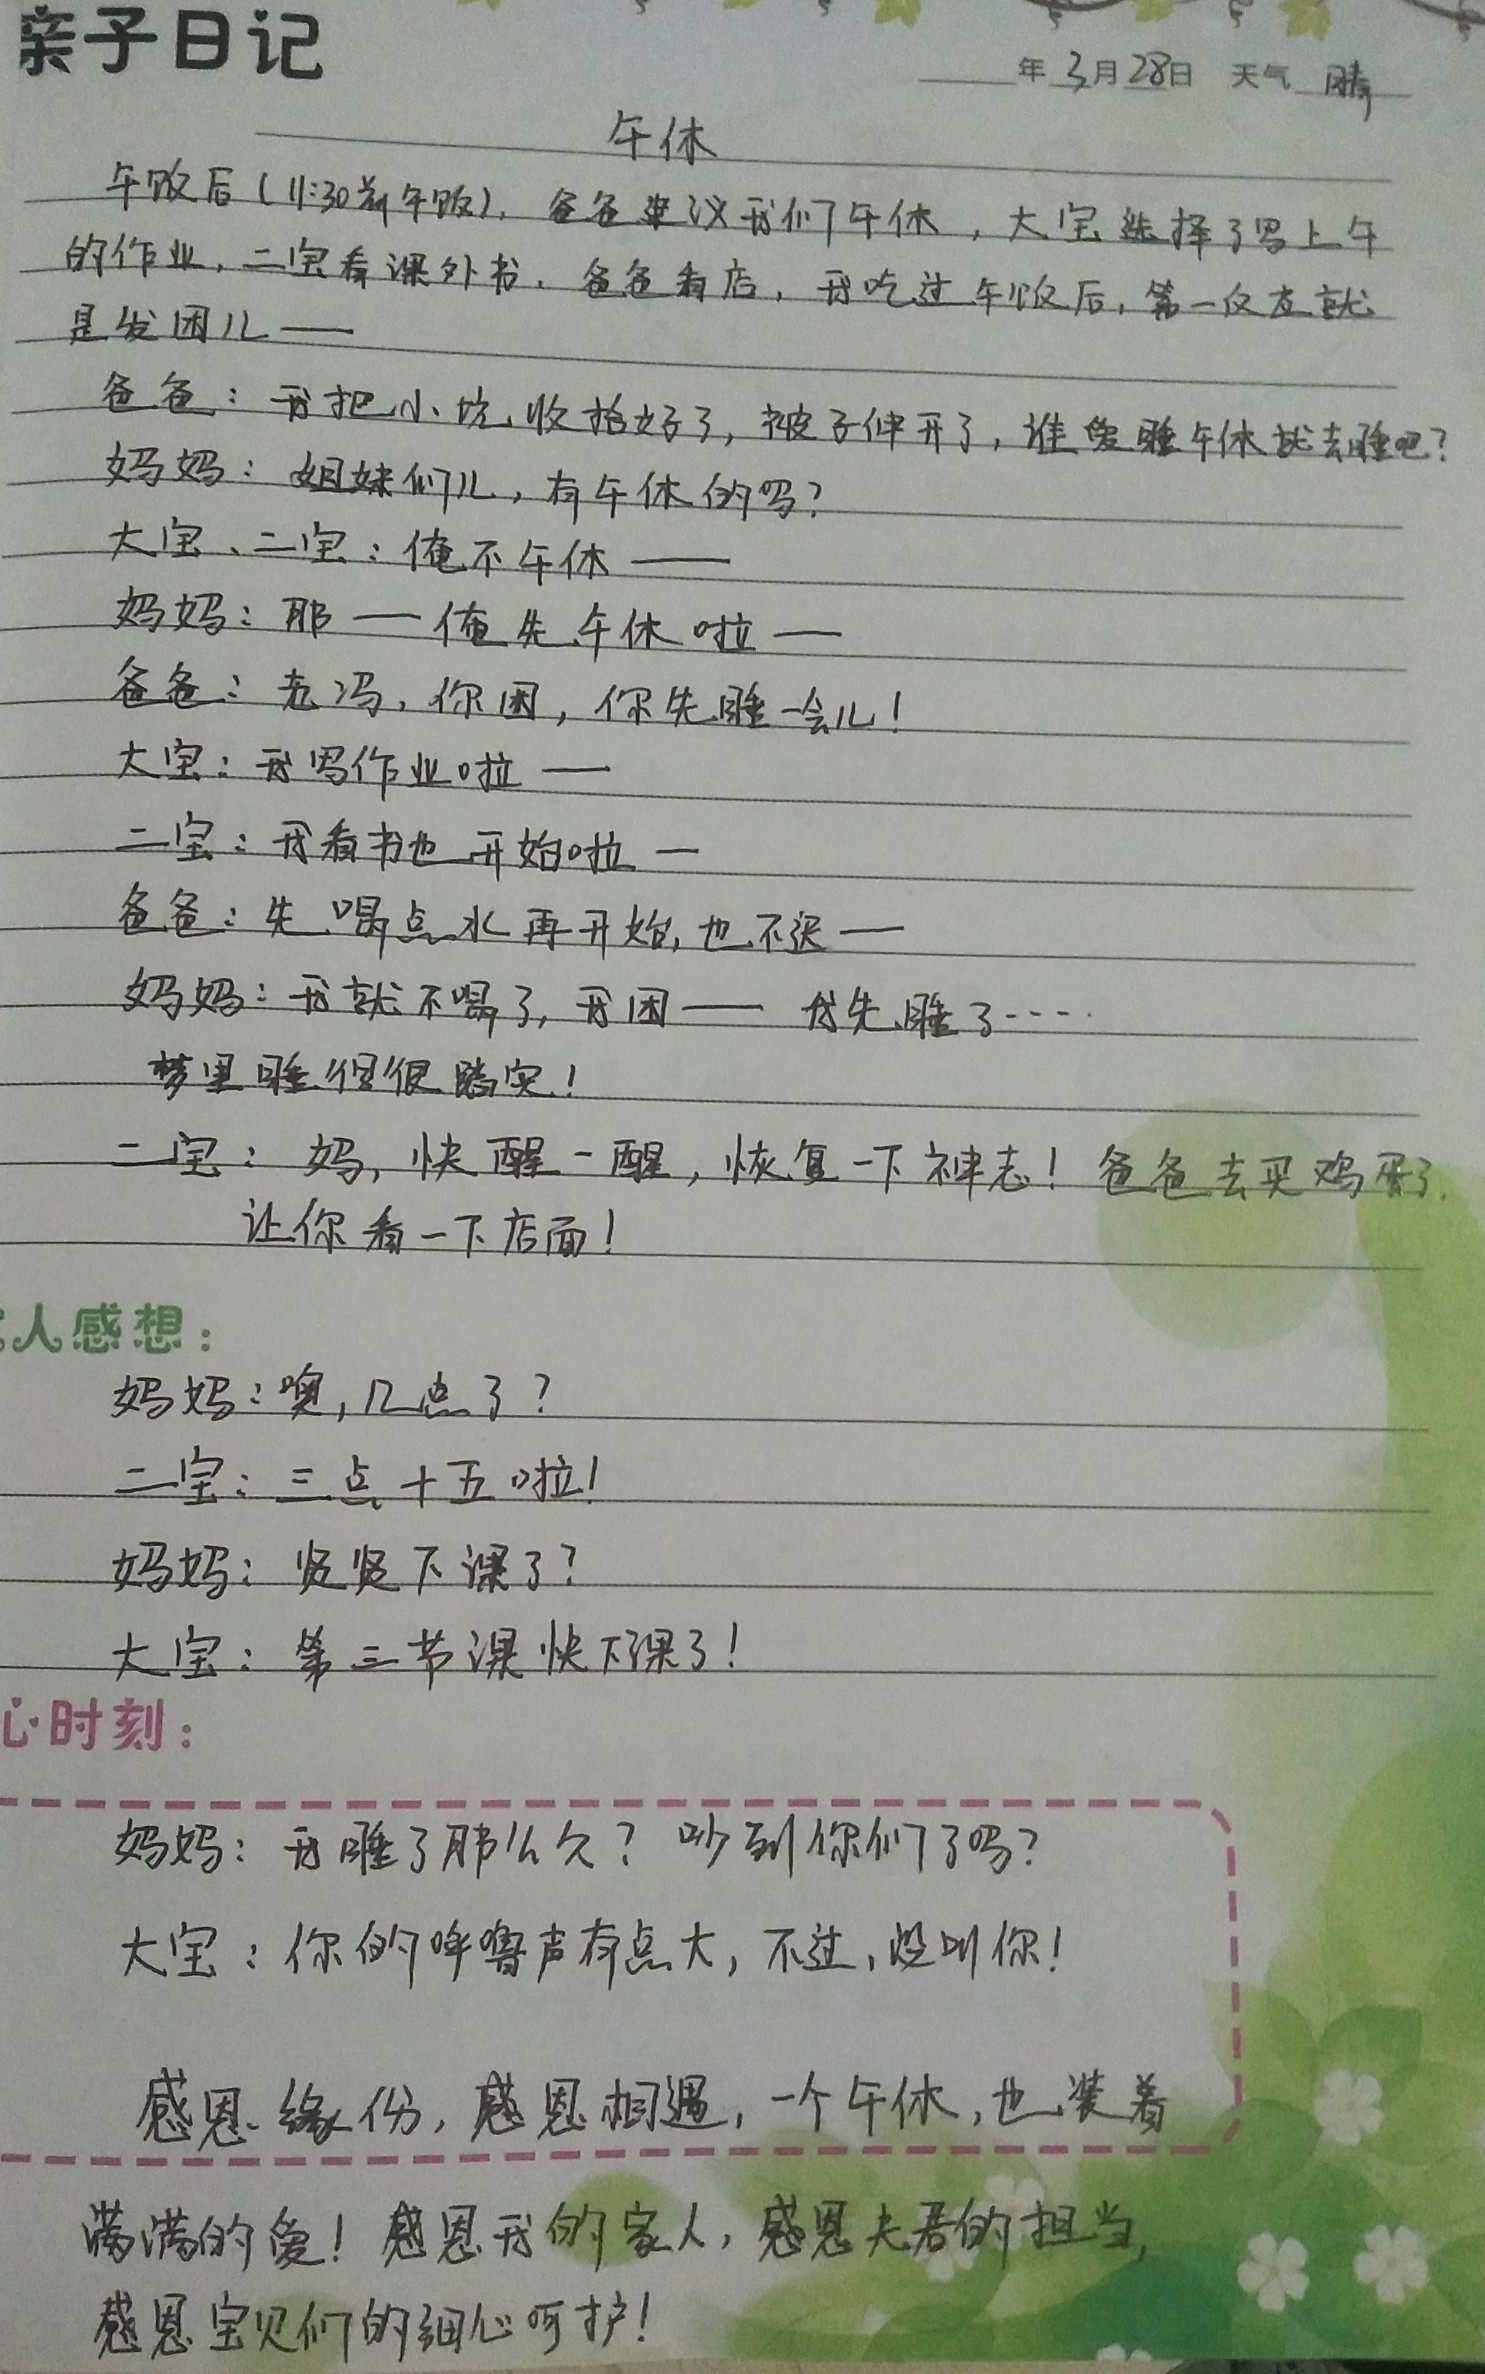 亲子日记
年 3月28日 天气 晴
午休
午饭后(11:30前午饭),爸爸建议我们午休,大宝选择了写上午
的作业,二宝看课外书,爸爸看店,我吃过午饭后,第一反应就
是发困儿——
爸爸:我把小炕收拾好了,被子伸开了,谁先睡午休就去睡吧?
妈妈:姐妹们儿,有午休的吗?
大宝、二宝:俺不午休——
妈妈:那——俺先午休啦——
爸爸:老冯,你困,你先睡一会儿!
大宝:我写作业啦——
二宝:我看书也开始啦—
爸爸:先喝点水再开始,也不迟——
妈妈:我就不喝了,我困——我先睡了……
梦里睡得很踏实!
二宝:妈,快醒一醒,恢复一下神志!爸爸去买鸡蛋了,
让你看一下店面!
人感想:
妈妈:噢,几点了?
二宝:三点十五啦!
妈妈:贤贤下课了?
大宝:第三节课快下课了!
心时刻:
妈妈:我睡了那么久?吵到你们了吗?
大宝:你的呼噜声有点大,不过,没叫你!
感恩缘份,感恩相遇,一个午休,也装着
满满的爱!感恩我的家人,感恩夫君的担当,
感恩宝贝们的细心呵护!